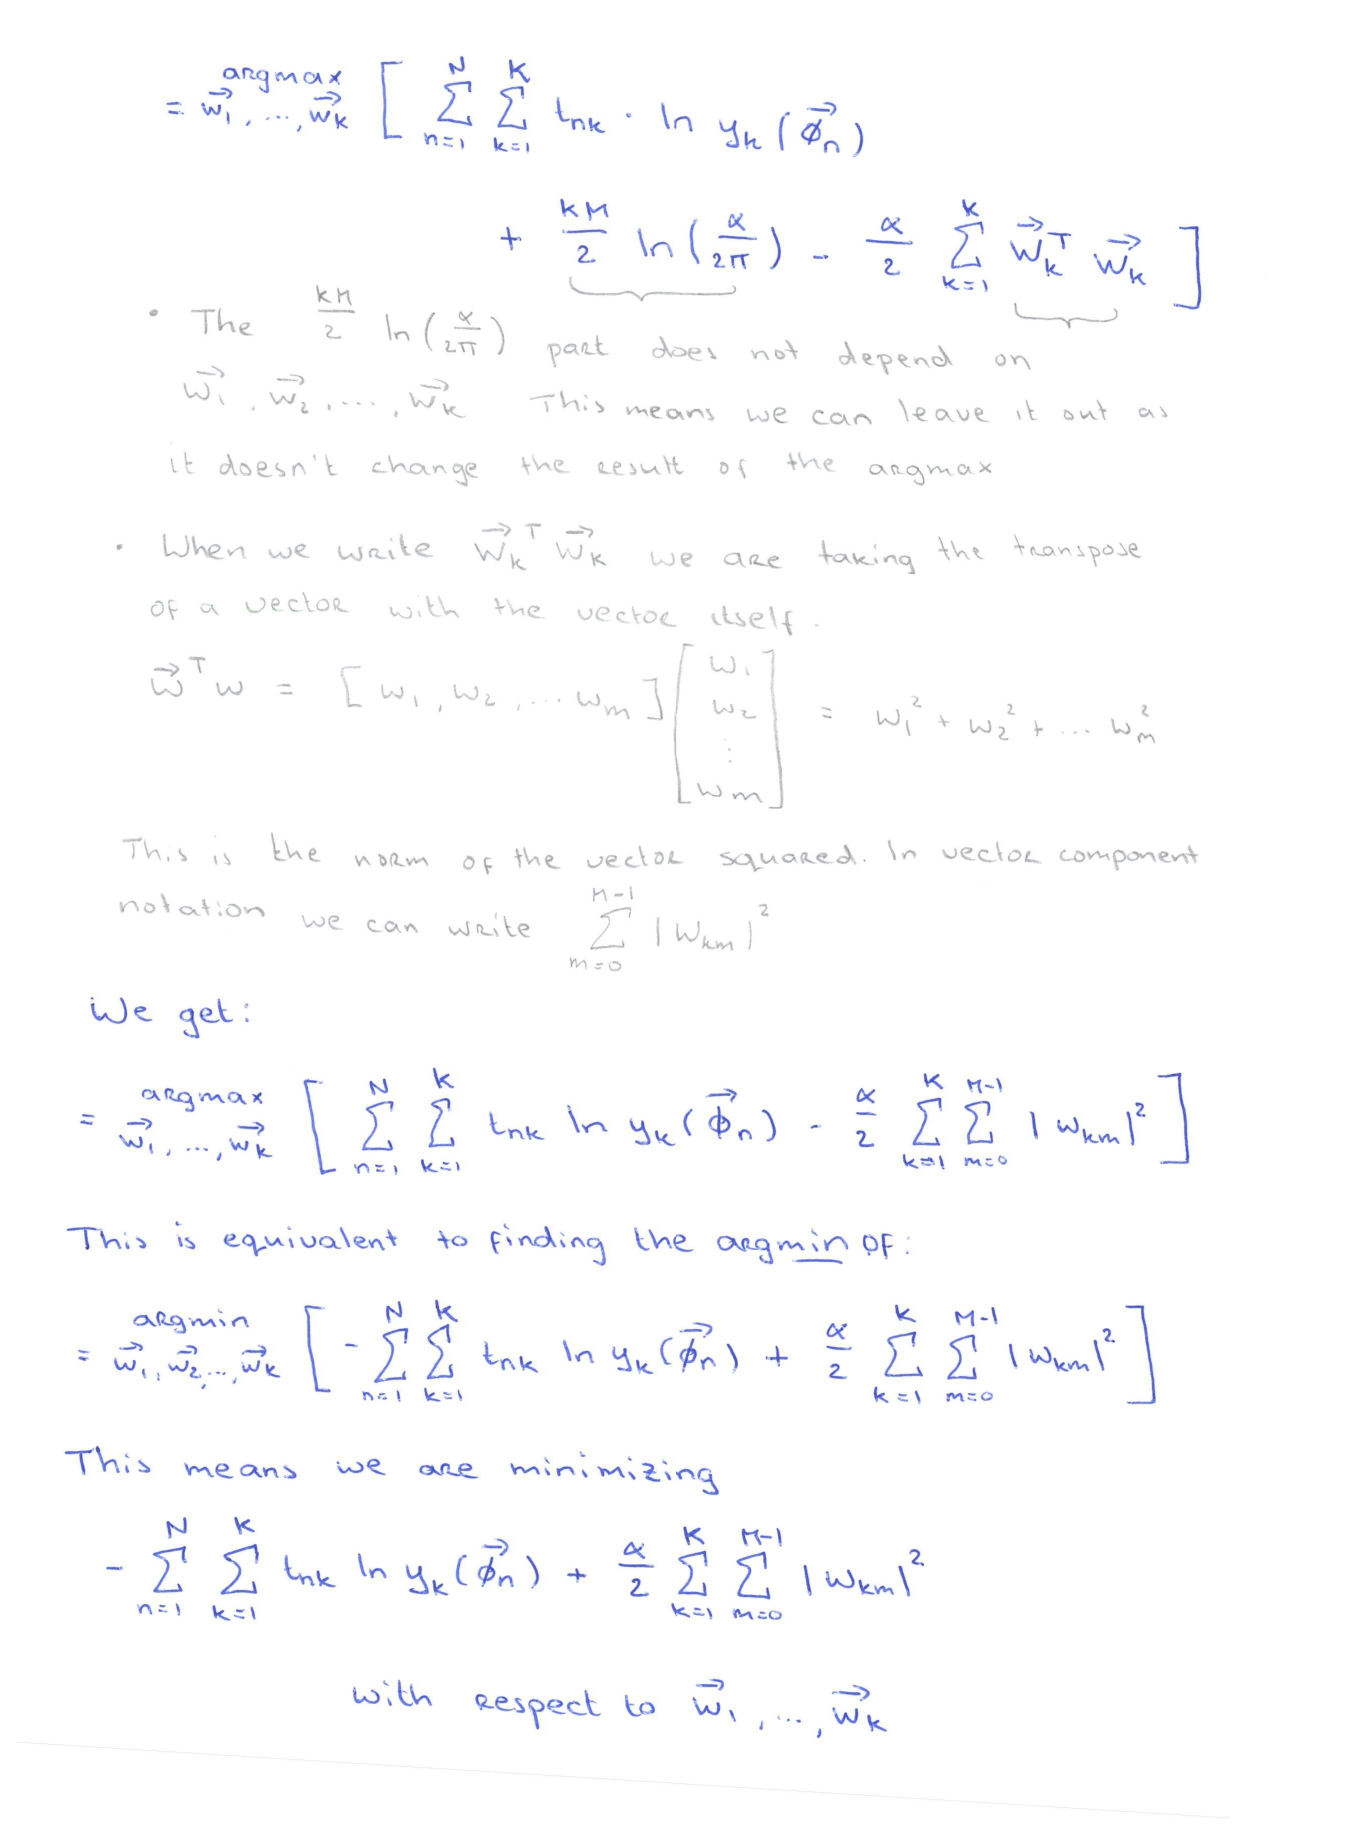 = argmax_{w⃗₁, ..., w⃗_K} [ Σ_{n=1}^{N} Σ_{k=1}^{K} t_{nk} · ln y_k(ϕ⃗_n)
+ KM/2 ln(α/2π) - α/2 Σ_{k=1}^{K} w⃗_k^T w⃗_k ]
• The KM/2 ln(α/2π) part does not depend on
w⃗₁, w⃗₂, ..., w⃗_K This means we can leave it out as
it doesn't change the result of the argmax
• When we write w⃗_k^T w⃗_k we are taking the transpose
of a vector with the vector itself.
w⃗^T w = [w₁, w₂, ... w_m] [w₁ w₂ ⋮ w_m] = w₁² + w₂² + ... w_m²
This is the norm of the vector squared. In vector component
notation we can write Σ_{m=0}^{M-1} |w_{km}|²
We get:
= argmax_{w⃗₁, ..., w⃗_K} [ Σ_{n=1}^{N} Σ_{k=1}^{K} t_{nk} ln y_k(ϕ⃗_n) - α/2 Σ_{k=1}^{K} Σ_{m=0}^{M-1} |w_{km}|² ]
This is equivalent to finding the argmin of:
= argmin_{w⃗₁, w⃗₂, ..., w⃗_K} [ - Σ_{n=1}^{N} Σ_{k=1}^{K} t_{nk} ln y_k(ϕ⃗_n) + α/2 Σ_{k=1}^{K} Σ_{m=0}^{M-1} |w_{km}|² ]
This means we are minimizing
- Σ_{n=1}^{N} Σ_{k=1}^{K} t_{nk} ln y_k(ϕ⃗_n) + α/2 Σ_{k=1}^{K} Σ_{m=0}^{M-1} |w_{km}|²
with respect to w⃗₁, ..., w⃗_K